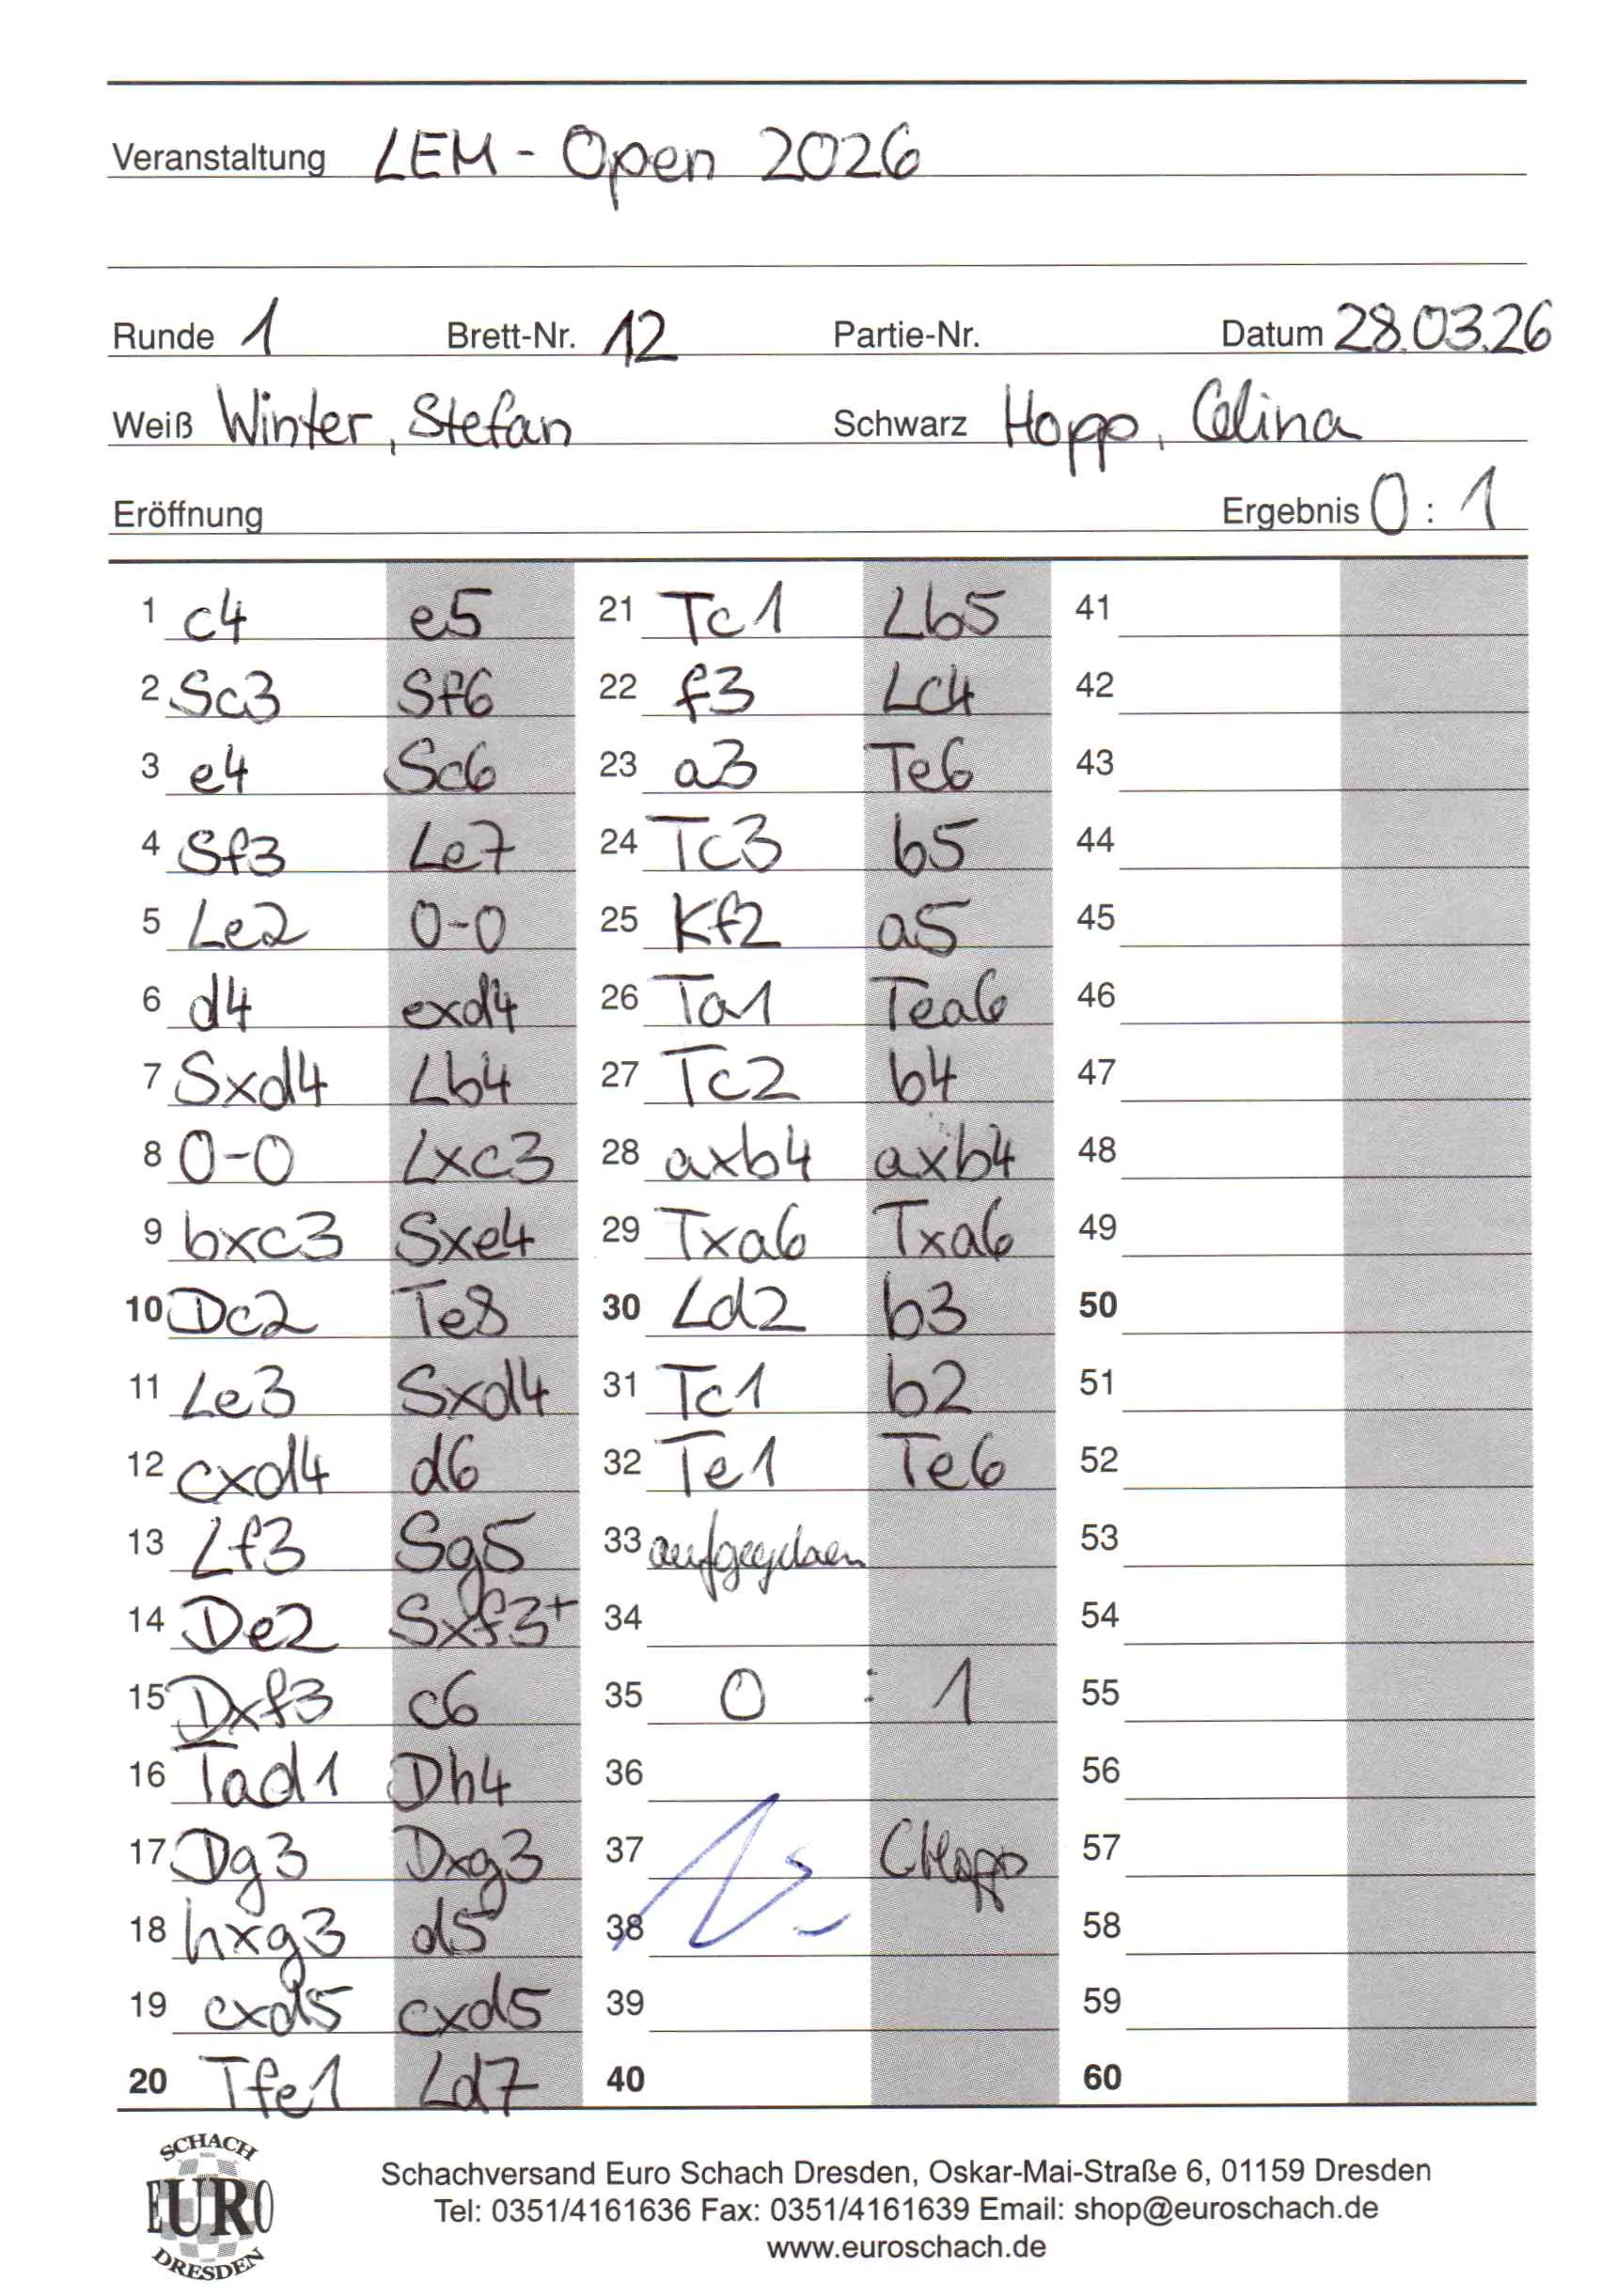 Veranstaltung LEM - Open 2026
Runde 1 Brett-Nr. 12 Partie-Nr. Datum 28.03.26
Weiß Winter, Stefan Schwarz Hopp, Celina
Eröffnung Ergebnis 0 : 1
1 c4 e5 21 Tc1 Lb5 41
2 Sc3 Sf6 22 f3 Lc4 42
3 e4 Sc6 23 a3 Te6 43
4 Sf3 Le7 24 Tc3 b5 44
5 Le2 0-0 25 Kf2 a5 45
6 d4 exd4 26 Ta1 Tea6 46
7 Sxd4 Lb4 27 Tc2 b4 47
8 0-0 Lxc3 28 axb4 axb4 48
9 bxc3 Sxe4 29 Txa6 Txa6 49
10 Dc2 Te8 30 Ld2 b3 50
11 Le3 Sxd4 31 Tc1 b2 51
12 cxd4 d6 32 Te1 Te6 52
13 Lf3 Sg5 33 aufgegeben 53
14 De2 Sxf3+ 34 54
15 Dxf3 c6 35 0 : 1 55
16 Tad1 Dh4 36 56
17 Dg3 Dxg3 37 CHopp 57
18 hxg3 d5 38 58
19 cxd5 cxd5 39 59
20 Tfe1 Ld7 40 60
SCHACH
EURO
DRESDEN
Schachversand Euro Schach Dresden, Oskar-Mai-Straße 6, 01159 Dresden
Tel: 0351/4161636 Fax: 0351/4161639 Email: shop@euroschach.de
www.euroschach.de